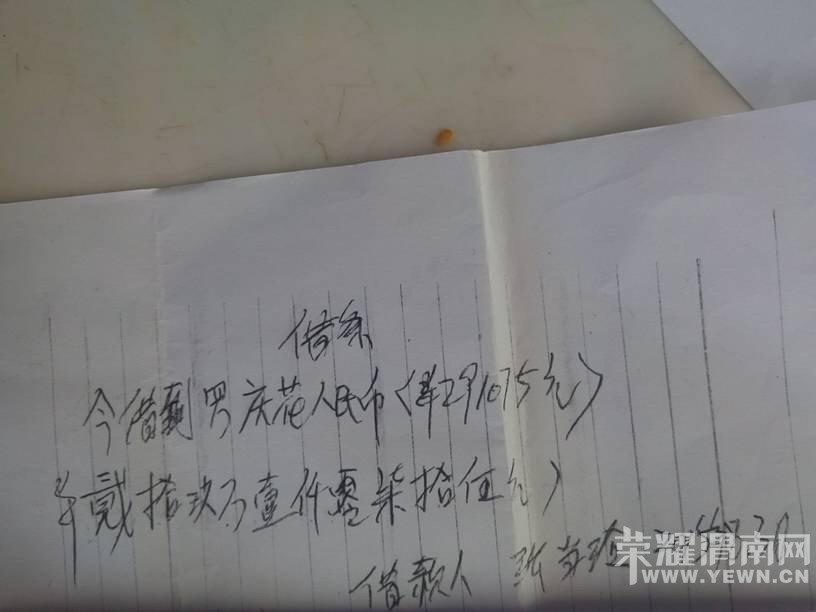 借条
今借到 罗庆花人民币(¥291075元)
贰拾玖万壹仟零柒拾伍元)
借款人 张
荣耀渭南网
WWW.YEWN.CN